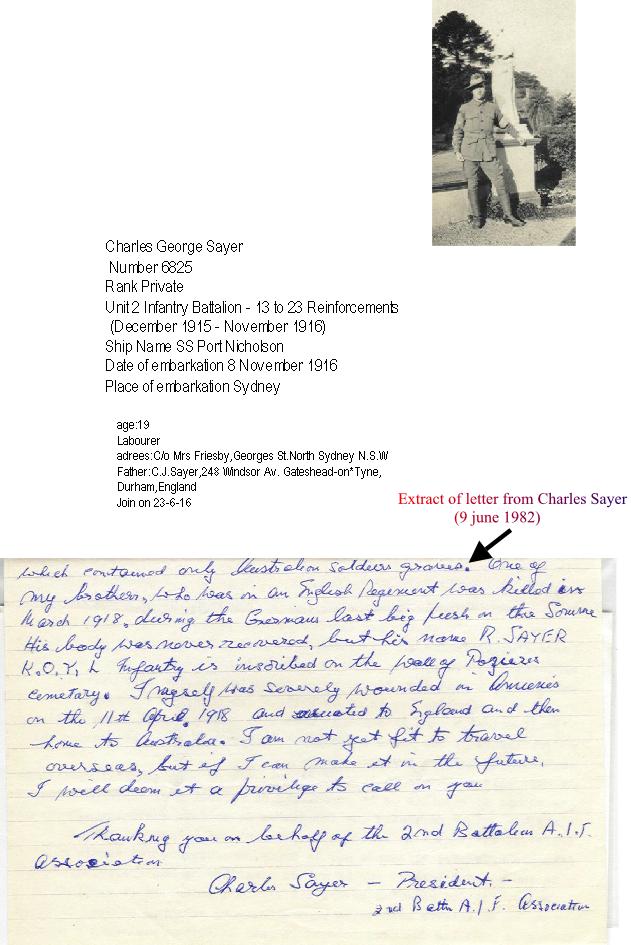 Charles George Sayer
Number 6825
Rank Private
Unit2 Infantry Battalion - 13 to 23 Reinforcements
(December 1915 - November 1916)
Ship Name SS Port Nicholson
Date of embarkation 8 November 1916
Place of embarkation Sydney
age:19
Labourer
adrees:C/o Mrs Friesby,Georges St.North Sydney N.S.W
Father:C.J.Sayer,248 Windsor Av. Gateshead-on*Tyne,
Durham,England
Join on 23-6-16
Extract of letter from Charles Sayer
(9 june 1982)
which contained only Australian soldiers graves. One of
my brothers, who was in an English Regiment was killed in
March 1918, during the Germans last big push on the Somme
His body was never recovered, but his name R. SAYER
K.O.Y. L Infantry is inscribed on the wall of Pozieres
cemetary. I myself was severely wounded in
on the 11th April, 1918 and to England and then
home to Australia. I am not yet fit to travel
overseas, but if I can make it in the future,
I will deem it a privilige to call on you
Thanking you on behalf of the 2nd Battalion A.I.F.
Association
Charles Sayer - President. -
2nd Battn A.I.F. Association